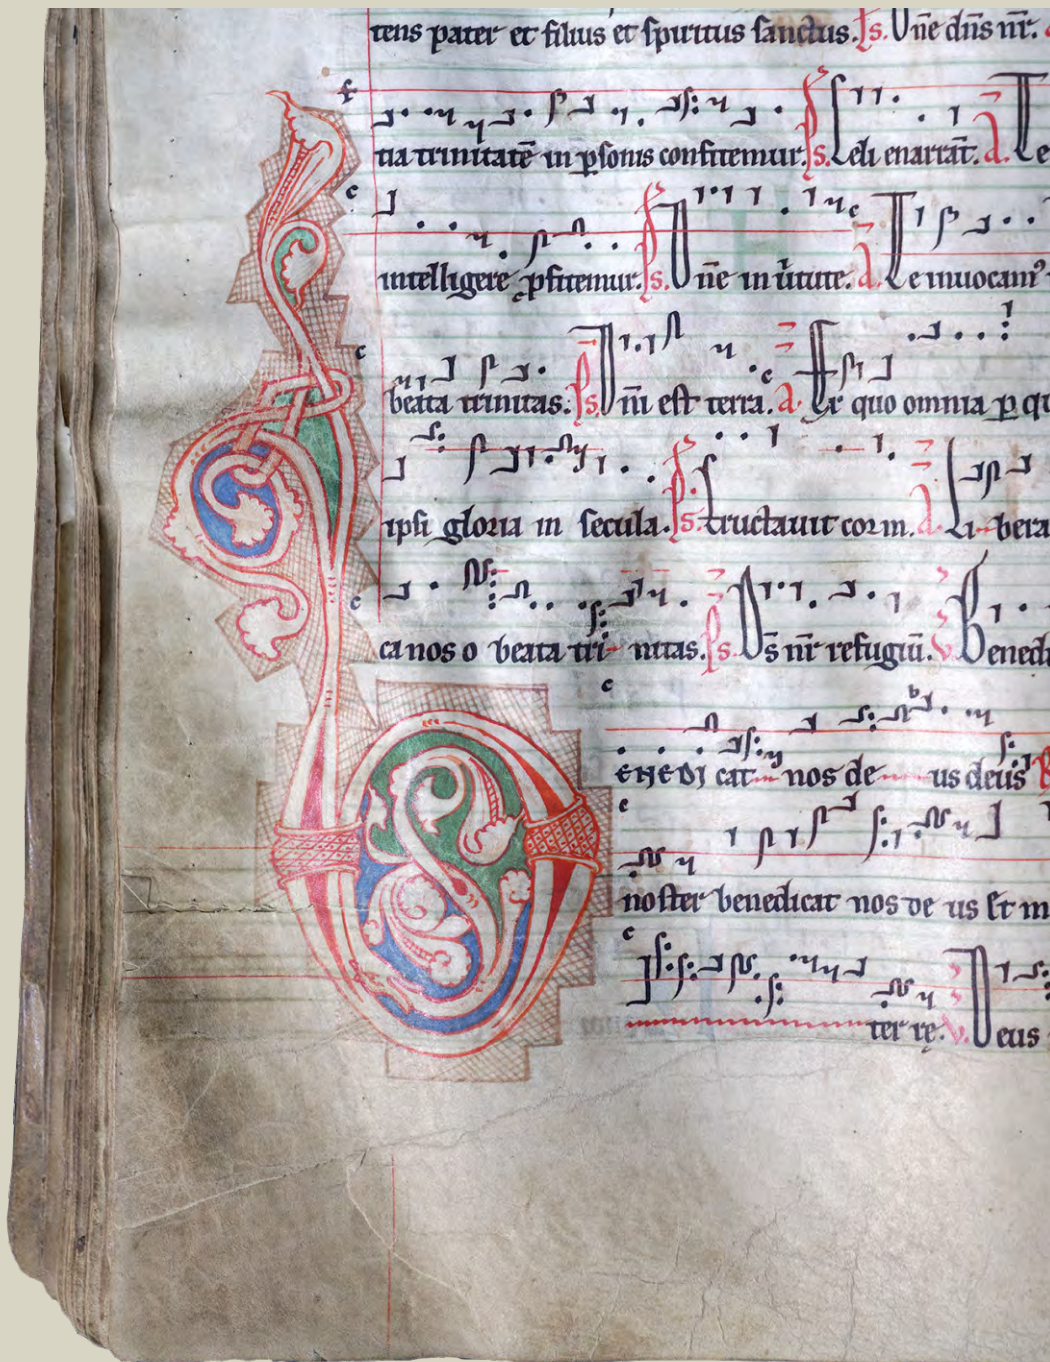 tens pater et filius et spiritus sanctus. ps. Dn̄e dn̄s nr̄.
tia trinitatē in ꝑsonis confitemur. ps. Celi enarrāt. a. Te
intelligere ꝓfitemur. ps. Dn̄e in u̓tute. a. Te inuocamꝰ
beata trinitas. ps. Dn̄i est terra. a. Ex quo omnia ꝑ qu
ipsi gloria in secula. ps. Eructauit cor m. a. Libera
ca nos o beata tri nitas. ps. Ds̄ nr̄ refugiū. v. Bened
ENEDI cat nos de us deus
noster benedicat nos de us et m
ter rę. v. Deus